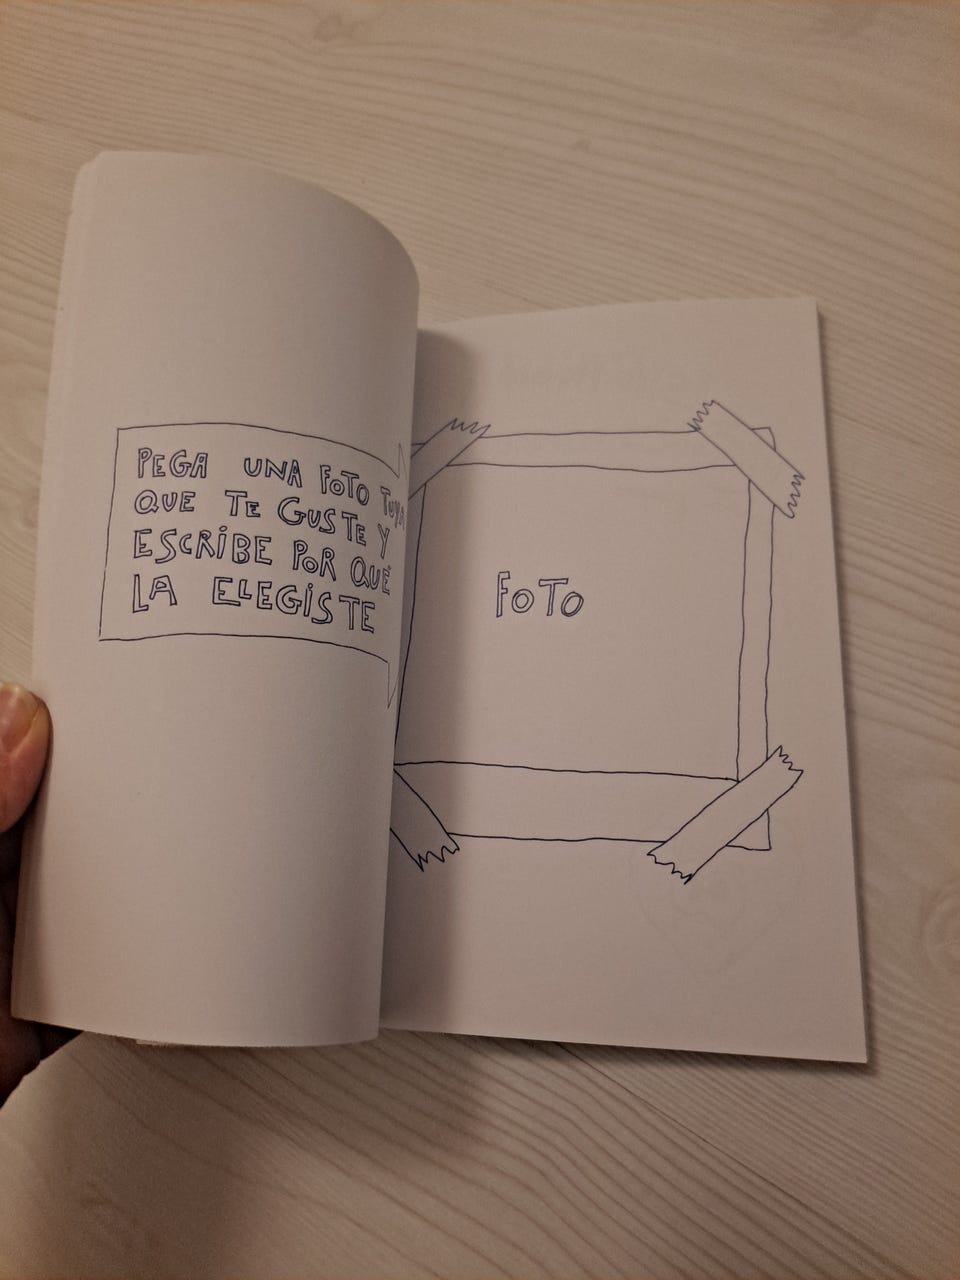 PEGA UNA FOTO TUYA
QUE TE GUSTE Y
ESCRIBE POR QUÉ
LA ELEGISTE
FOTO